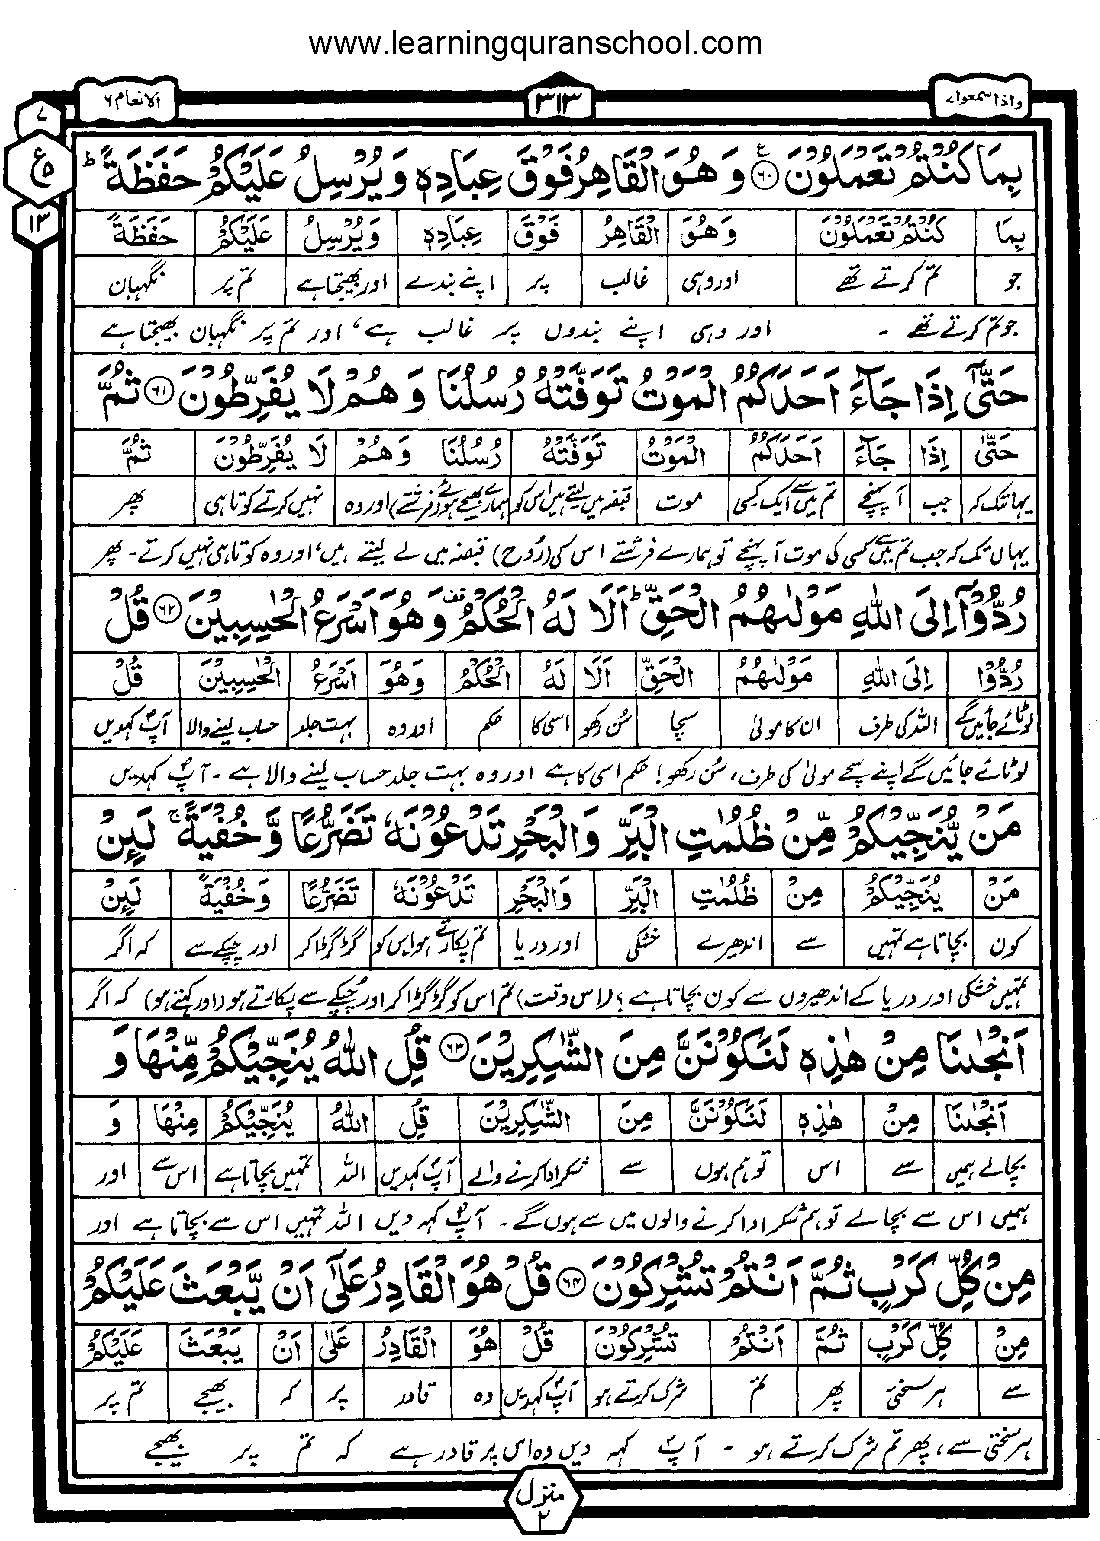 www.learningquranschool.com
واذا سمعوا ۷
۳۱۳
الانعام ۶
۷
ع
۵
۱۳
بِمَا كُنْتُمْ تَعْمَلُوْنَ ﴿۶۰﴾ ع وَهُوَ الْقَاهِرُ فَوْقَ عِبَادِهٖ وَيُرْسِلُ عَلَيْكُمْ حَفَظَةً ؕ
بِمَا كُنْتُمْ تَعْمَلُوْنَ وَهُوَ الْقَاهِرُ فَوْقَ عِبَادِهٖ وَيُرْسِلُ عَلَيْكُمْ حَفَظَةً
جو تم کرتے تھے اور وہی غالب پر اپنے بندے اور بھیجتا ہے تم پر نگہبان
جو تم کرتے تھے ۔ اور وہی اپنے بندوں پر غالب ہے، اور تم پر نگہبان بھیجتا ہے
حَتّٰۤى اِذَا جَآءَ اَحَدَكُمُ الْمَوْتُ تَوَفَّتْهُ رُسُلُنَا وَهُمْ لَا يُفَرِّطُوْنَ ﴿۶۱﴾ ثُمَّ
حَتّٰى اِذَا جَآءَ اَحَدَكُمُ الْمَوْتُ تَوَفَّتْهُ رُسُلُنَا وَهُمْ لَا يُفَرِّطُوْنَ ثُمَّ
یہانتک کہ جب آ پہنچے تم میں سے ایک۔کسی موت قبضہ میں لیتے ہیں اس کو ہمارے بھیجے ہوئے (فرشتے) اور وہ نہیں کرتے کوتاہی پھر
یہاں تک کہ جب تم میں سے کسی کی موت آ پہنچے تو ہمارے فرشتے اس کی (رُوح) قبضہ میں لے لیتے ہیں، اور وہ کوتاہی نہیں کرتے ۔ پھر
رُدُّوْۤا اِلَى اللّٰهِ مَوْلٰىهُمُ الْحَقِّ ؕ اَلَا لَهُ الْحُكْمُ وَهُوَ اَسْرَعُ الْحٰسِبِيْنَ ﴿۶۲﴾ قُلْ
رُدُّوْۤا اِلَى اللّٰهِ مَوْلٰىهُمُ الْحَقِّ اَلَا لَهُ الْحُكْمُ وَهُوَ اَسْرَعُ الْحٰسِبِيْنَ قُلْ
لوٹائے جائیں گے اللہ کی طرف ان کا مولیٰ سچا سُن رکھو اسی کا حکم اور وہ بہت جلد حساب لینے والا آپؐ کہدیں
لوٹائے جائیں گے اپنے سچے مولیٰ کی طرف، سُن رکھو! حکم اسی کا ہے اور وہ بہت جلد حساب لینے والا ہے ۔ آپؐ کہدیں
مَنْ يُّنَجِّيْكُمْ مِّنْ ظُلُمٰتِ الْبَرِّ وَالْبَحْرِ تَدْعُوْنَهٗ تَضَرُّعًا وَّخُفْيَةً ۚ لَىِٕنْ
مَنْ يُنَجِّيْكُمْ مِنْ ظُلُمٰتِ الْبَرِّ وَالْبَحْرِ تَدْعُوْنَهٗ تَضَرُّعًا وَخُفْيَةً لَىِٕنْ
کون بچاتا ہے تمہیں سے اندھیرے خشکی اور دریا تم پکارتے ہو اس کو گڑگڑا کر اور چپکے سے کہ اگر
تمہیں خشکی اور دریا کے اندھیروں سے کون بچاتا ہے؟ (اس وقت) تم اس کو گڑگڑا کر اور چُپکے سے پکارتے ہو (اور کہتے ہو) کہ اگر
اَنْجٰىنَا مِنْ هٰذِهٖ لَنَكُوْنَنَّ مِنَ الشّٰكِرِيْنَ ﴿۶۳﴾ قُلِ اللّٰهُ يُنَجِّيْكُمْ مِّنْهَا وَ
اَنْجٰىنَا مِنْ هٰذِهٖ لَنَكُوْنَنَّ مِنَ الشّٰكِرِيْنَ قُلِ اللّٰهُ يُنَجِّيْكُمْ مِنْهَا وَ
بچا لے ہمیں سے اس تو ہم ہوں سے شکر ادا کرنے والے آپؐ کہدیں اللہ تمہیں بچاتا ہے اس سے اور
ہمیں اس سے بچا لے تو ہم شکر ادا کرنے والوں میں سے ہوں گے ۔ آپؐ کہہ دیں اللہ تمہیں اس سے بچاتا ہے اور
مِنْ كُلِّ كَرْبٍ ثُمَّ اَنْتُمْ تُشْرِكُوْنَ ﴿۶۴﴾ قُلْ هُوَ الْقَادِرُ عَلٰۤى اَنْ يَّبْعَثَ عَلَيْكُمْ
مِنْ كُلِّ كَرْبٍ ثُمَّ اَنْتُمْ تُشْرِكُوْنَ قُلْ هُوَ الْقَادِرُ عَلٰى اَنْ يَبْعَثَ عَلَيْكُمْ
سے ہر سختی پھر تم شرک کرتے ہو آپؐ کہدیں وہ قادر پر کہ بھیجے تم پر
ہر سختی سے، پھر تم شرک کرتے ہو ۔ آپؐ کہہ دیں وہ اس پر قادر ہے کہ تم پر بھیجے
منزل
۲